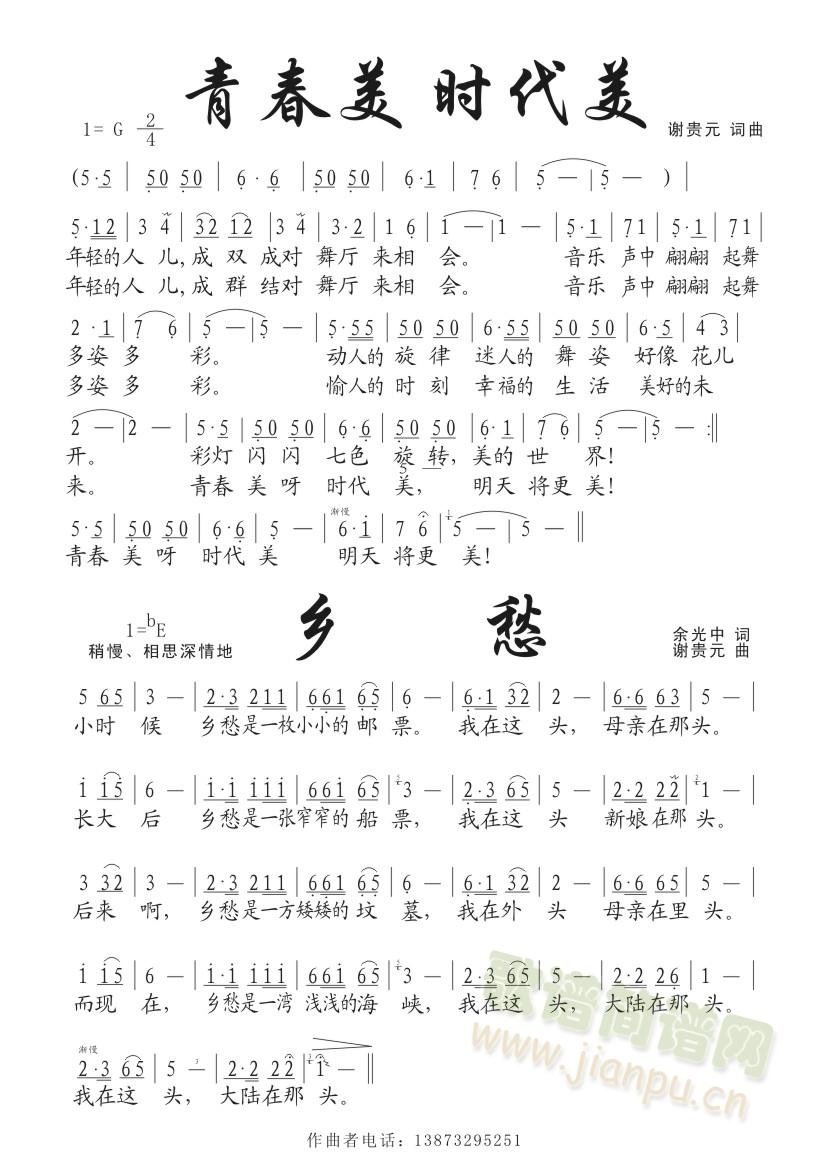 青春美 时代美
1= G 2/4
谢贵元 词曲
(5·5 | 50 50 | 6·6 | 50 50 | 6·1 | 7 6 | 5 — | 5 — ) |
5·12 | 3 4 | 32 12 | 3 4 | 3·2 | 1 6 | 1 — | 1 — | 5·1 | 71 | 5·1 | 71 |
年轻的人 儿,成 双 成对 舞厅 来相 会。 音乐 声中 翩翩 起舞
年轻的人 儿,成 群 结对 舞厅 来相 会。 音乐 声中 翩翩 起舞
2·1 | 7 6 | 5 — | 5 — | 5·55 | 50 50 | 6·55 | 50 50 | 6·5 | 4 3 |
多姿 多 彩。 动人的 旋 律 迷人的 舞 姿 好像 花儿
多姿 多 彩。 愉人的 时 刻 幸福的 生 活 美好的未
2 — | 2 — | 5·5 | 50 50 | 6·6 | 50 50 | 6·1 | 7 6 | 5 — | 5 — :||
开。 彩灯 闪 闪 七色 旋 转, 美的 世 界!
5 —
来。 青春 美 呀 时代 美, 明天 将更 美!
渐慢
5·5 | 50 50 | 6·6 | 5 — | 6·i | 7 6 | 5 — | 5 — ||
青春 美 呀 时代 美 明天 将更 美!
乡 愁
1=bE
稍慢、相思深情地
余光中 词
谢贵元 曲
5 65 | 3 — | 2·3 211 | 661 65 | 6 — | 6·1 32 | 2 — | 6·6 63 | 5 — |
小时 候 乡愁是一枚小小的 邮 票。 我在这 头, 母亲在那头。
i i5 | 6 — | i·i iii | 661 65 | 3 — | 2·3 65 | 5 — | 2·2 22 | 1 — |
长大 后 乡愁是一张窄窄的 船 票, 我在这 头 新娘在那 头。
3 32 | 3 — | 2·3 211 | 661 65 | 6 — | 6·1 32 | 2 — | 6·6 65 | 5 — |
后来 啊, 乡愁是一方矮矮的 坟 墓, 我在外 头 母亲在里 头。
i i5 | 6 — | i·i iii | 661 65 | 3 — | 2·3 65 | 5 — | 2·2 26 | 1 — |
而现 在, 乡愁是一湾 浅浅的海 峡, 我在这 头, 大陆在那 头。
渐慢
2·3 65 | 5 — | 2·2 22 | 1 — ||
我在这 头, 大陆在那 头。
歌谱简谱网
www.jianpu.cn
作曲者电话：13873295251